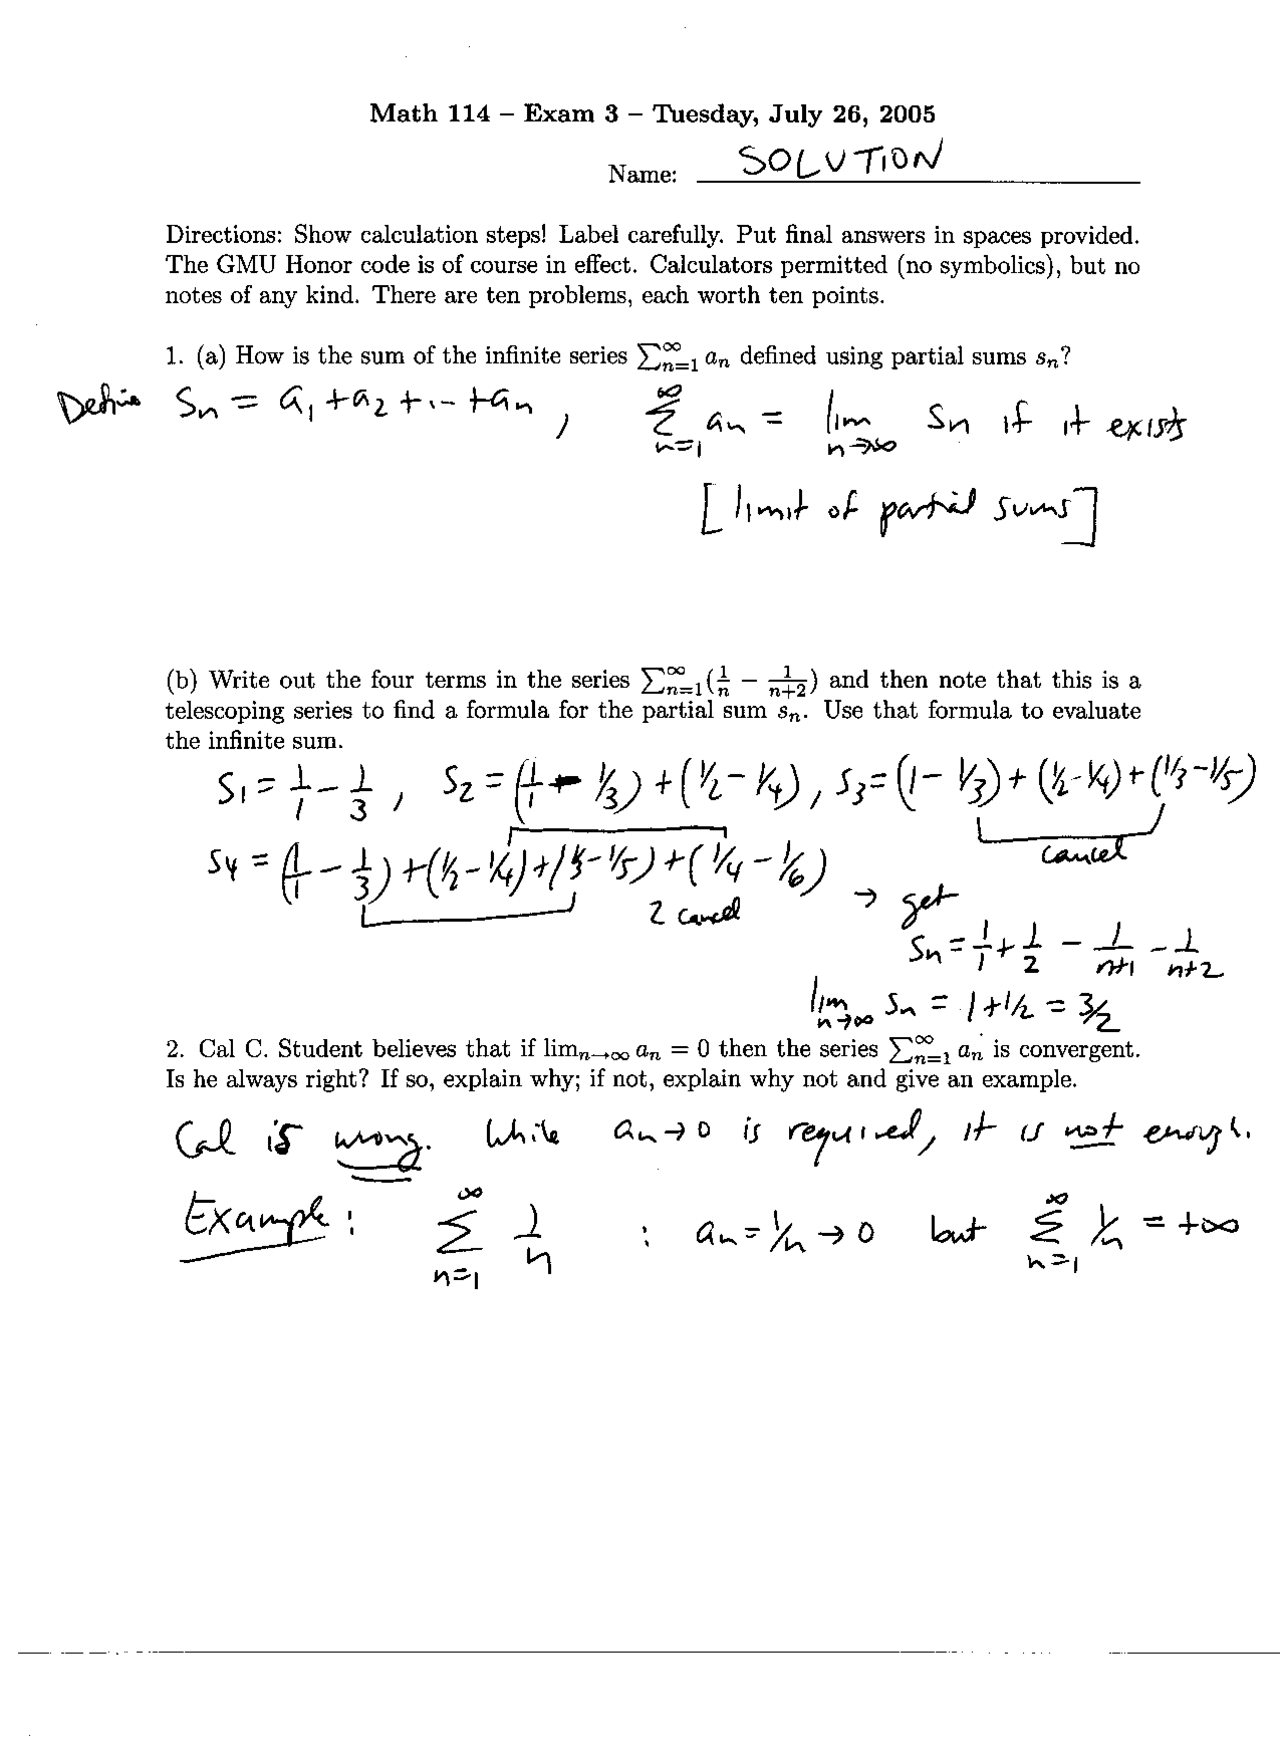 Math 114 – Exam 3 – Tuesday, July 26, 2005
Name: SOLUTION
Directions: Show calculation steps! Label carefully. Put final answers in spaces provided.
The GMU Honor code is of course in effect. Calculators permitted (no symbolics), but no
notes of any kind. There are ten problems, each worth ten points.
1. (a) How is the sum of the infinite series ∑_{n=1}^{∞} a_n defined using partial sums s_n?
Define S_n = a_1 + a_2 + ... + a_n , ∑_{n=1}^{∞} a_n = lim_{n→∞} S_n if it exists
[limit of partial sums]
(b) Write out the four terms in the series ∑_{n=1}^{∞}(1/n − 1/(n+2)) and then note that this is a
telescoping series to find a formula for the partial sum s_n. Use that formula to evaluate
the infinite sum.
S_1 = 1/1 − 1/3 , S_2 = (1/1 − 1/3) + (1/2 − 1/4) , S_3 = (1 − 1/3) + (1/2 − 1/4) + (1/3 − 1/5)
cancel
S_4 = (1/1 − 1/3) + (1/2 − 1/4) + (1/3 − 1/5) + (1/4 − 1/6)
2 cancel
→ get
S_n = 1/1 + 1/2 − 1/(n+1) − 1/(n+2)
lim_{n→∞} S_n = 1 + 1/2 = 3/2
2. Cal C. Student believes that if lim_{n→∞} a_n = 0 then the series ∑_{n=1}^{∞} a_n is convergent.
Is he always right? If so, explain why; if not, explain why not and give an example.
Cal is wrong. While a_n → 0 is required, it is not enough.
Example: ∑_{n=1}^{∞} 1/n : a_n = 1/n → 0 but ∑_{n=1}^{∞} 1/n = +∞